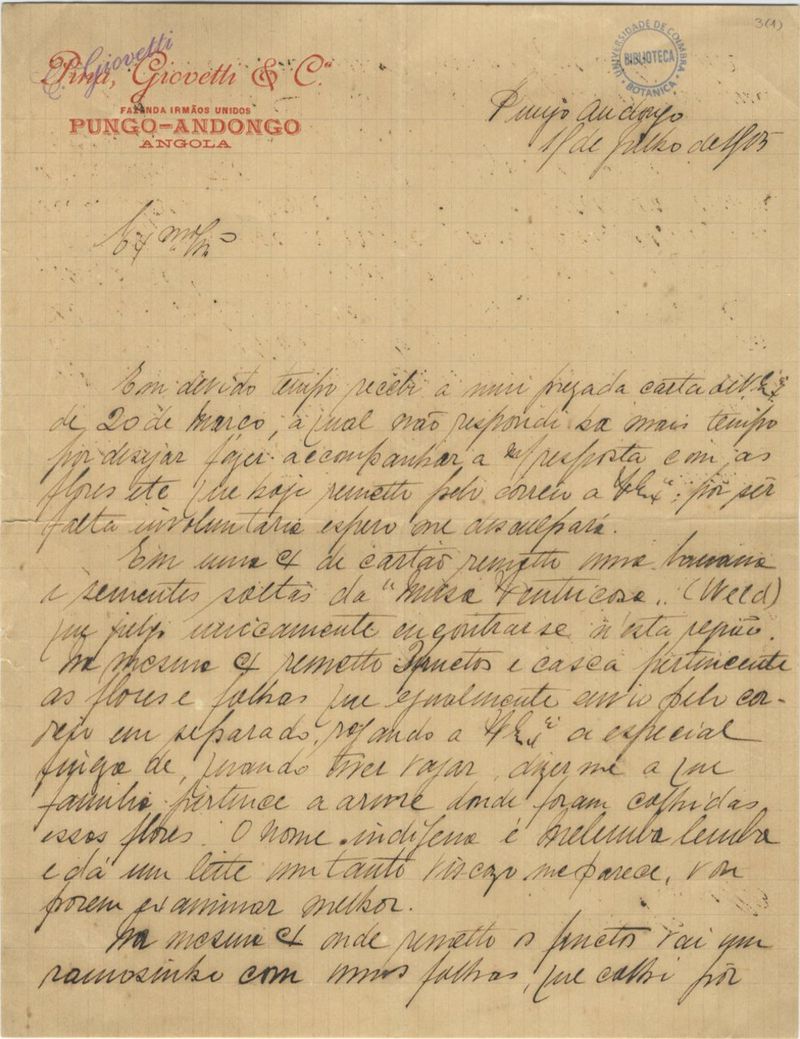 3(1)
C. Giovetti
Pina, Giovetti & Cª
FAZENDA IRMÃOS UNIDOS
PUNGO-ANDONGO
ANGOLA
UNIVERSIDADE DE COIMBRA
BIBLIOTECA
BOTANICA
Pungo Andongo
de Julho de 1905
Exmo Snr
Em devido tempo recebi a mui prezada carta de V. Exª
de 20 de Março, a qual não respondi ha mais tempo
por desejar fazer accompanhar a resposta com as
flores etc que hoje remetto pelo correio a V. Exª; por ser
falta involuntaria espero me desculpará.
Em uma cx de cartão remetto uma banana
e sementes soltas da "Musa Ventricosa" (Welw)
que julgo unicamente encontrar-se n'esta região.
Na mesma cx remetto 3 fructos e casca pertencente
as flores e folhas que egualmente envio pelo cor-
reio em separado, rogando a V. Exª a especial
fineza de, quando tiver vagar, dizer-me a que
familia pertence a arvore donde foram colhidas
essas flores. O nome indigena é Mulemba lemba
e dá um leite um tanto viscozo me parece, vou
porem examinar melhor.
Na mesma cx onde remetto os fructos vai um
ramosinho com umas folhas, que colhi por